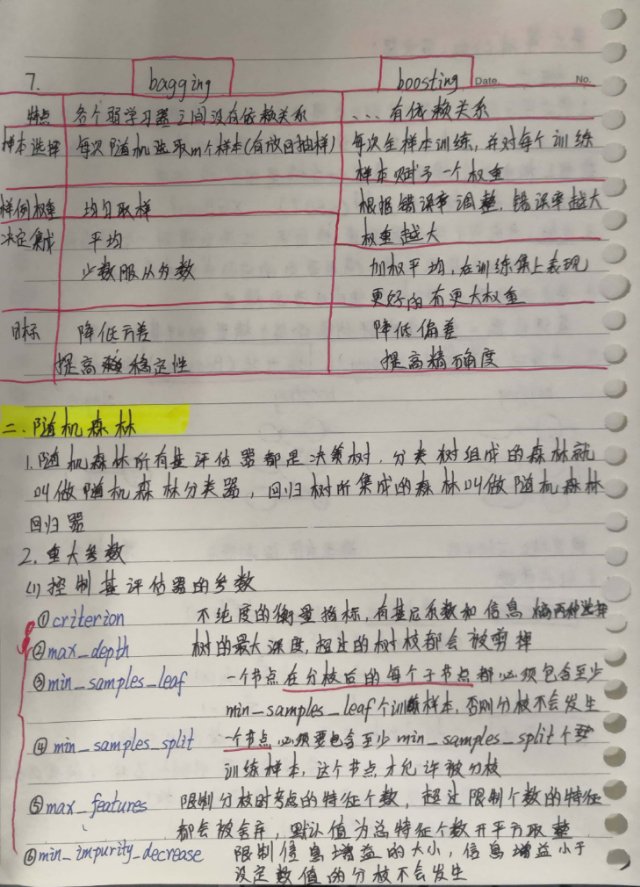 7. bagging boosting Date. No.
特点 各个弱学习器之间没有依赖关系 ... 有依赖关系
样本选择 每次随机选取m个样本(有放回抽样) 每次全样本训练,并对每个训练
样本赋予一个权重
样例权重 均匀取样 根据错误率调整,错误率越大
权重越大
决定集成 平均
少数服从多数 加权平均,在训练集上表现
更好的有更大权重
目标 降低方差 降低偏差
提高 稳定性 提高精确度
二.随机森林
1.随机森林所有基评估器都是决策树,分类树组成的森林就
叫做随机森林分类器,回归树所集成的森林叫做随机森林
回归器
2.重大参数
(1)控制基评估器的参数
①criterion 不纯度的衡量指标,有基尼系数和信息熵两种选择
②max_depth 树的最大深度,超过的树枝都会被剪掉
③min_samples_leaf 一个节点在分枝后的每个子节点都必须包含至少
min_samples_leaf个训练样本,否则分枝不会发生
④min_samples_split 一个节点必须要包含至少min_samples_split个
训练样本,这个节点才允许被分枝
⑤max_features 限制分枝时考虑的特征个数,超过限制个数的特征
都会被舍弃,默认值为总特征个数开平方取整
⑥min_impurity_decrease 限制信息增益的大小,信息增益小于
设定数值的分枝不会发生